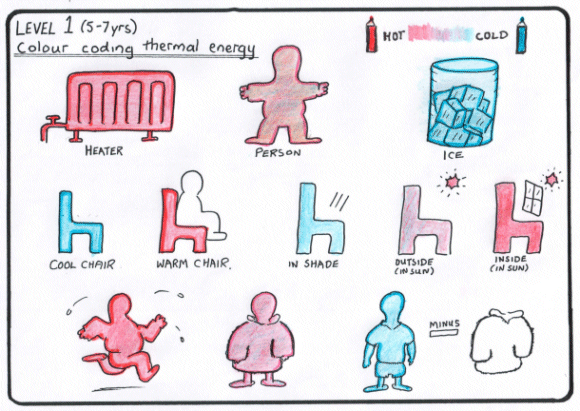 LEVEL 1 (5-7yrs)
Colour coding thermal energy
HOT COLD
HEATER
PERSON
ICE
COOL CHAIR
WARM CHAIR.
IN SHADE
OUTSIDE
(IN SUN)
INSIDE
(IN SUN)
MINUS